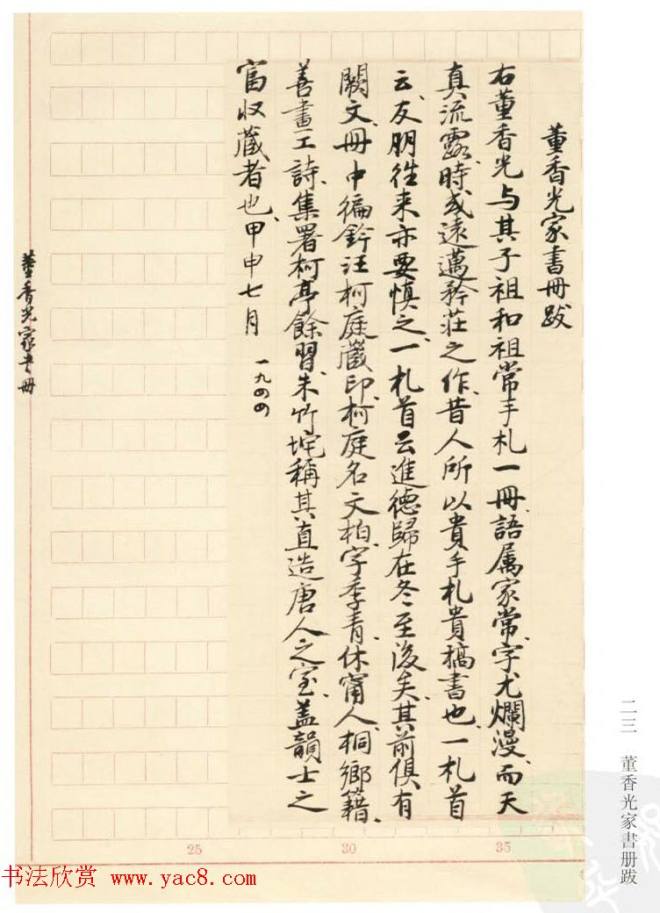 董香光家書冊跋
右董香光与其子祖和祖常手札一冊、語属家常、字尤爛漫、而天
真流露、時或遠邁矜莊之作、昔人所以貴手札貴稿書也一札首
云、友朋往来亦要慎之、一札首云進德歸在冬至後矣、其前俱有
闕文、冊中徧鈐汪柯庭藏印、柯庭名文柏、字季青、休甯人、桐鄉籍、
善畫工詩、集署柯亭餘習、朱竹垞稱其直造唐人之室、盖韻士之
富收藏者也、甲申七月
一九四四
董香光家書冊
二三 董香光家書册跋
25
30
35
书法欣赏 www.yac8.com